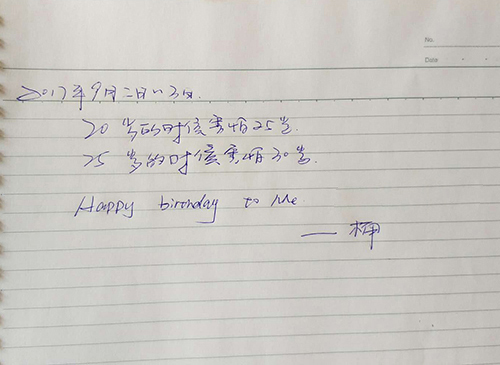 No.
Date
2017年9月二日~3日.
20岁的时候害怕25岁.
25岁的时候害怕30岁.
Happy birthday to Me.
—柙